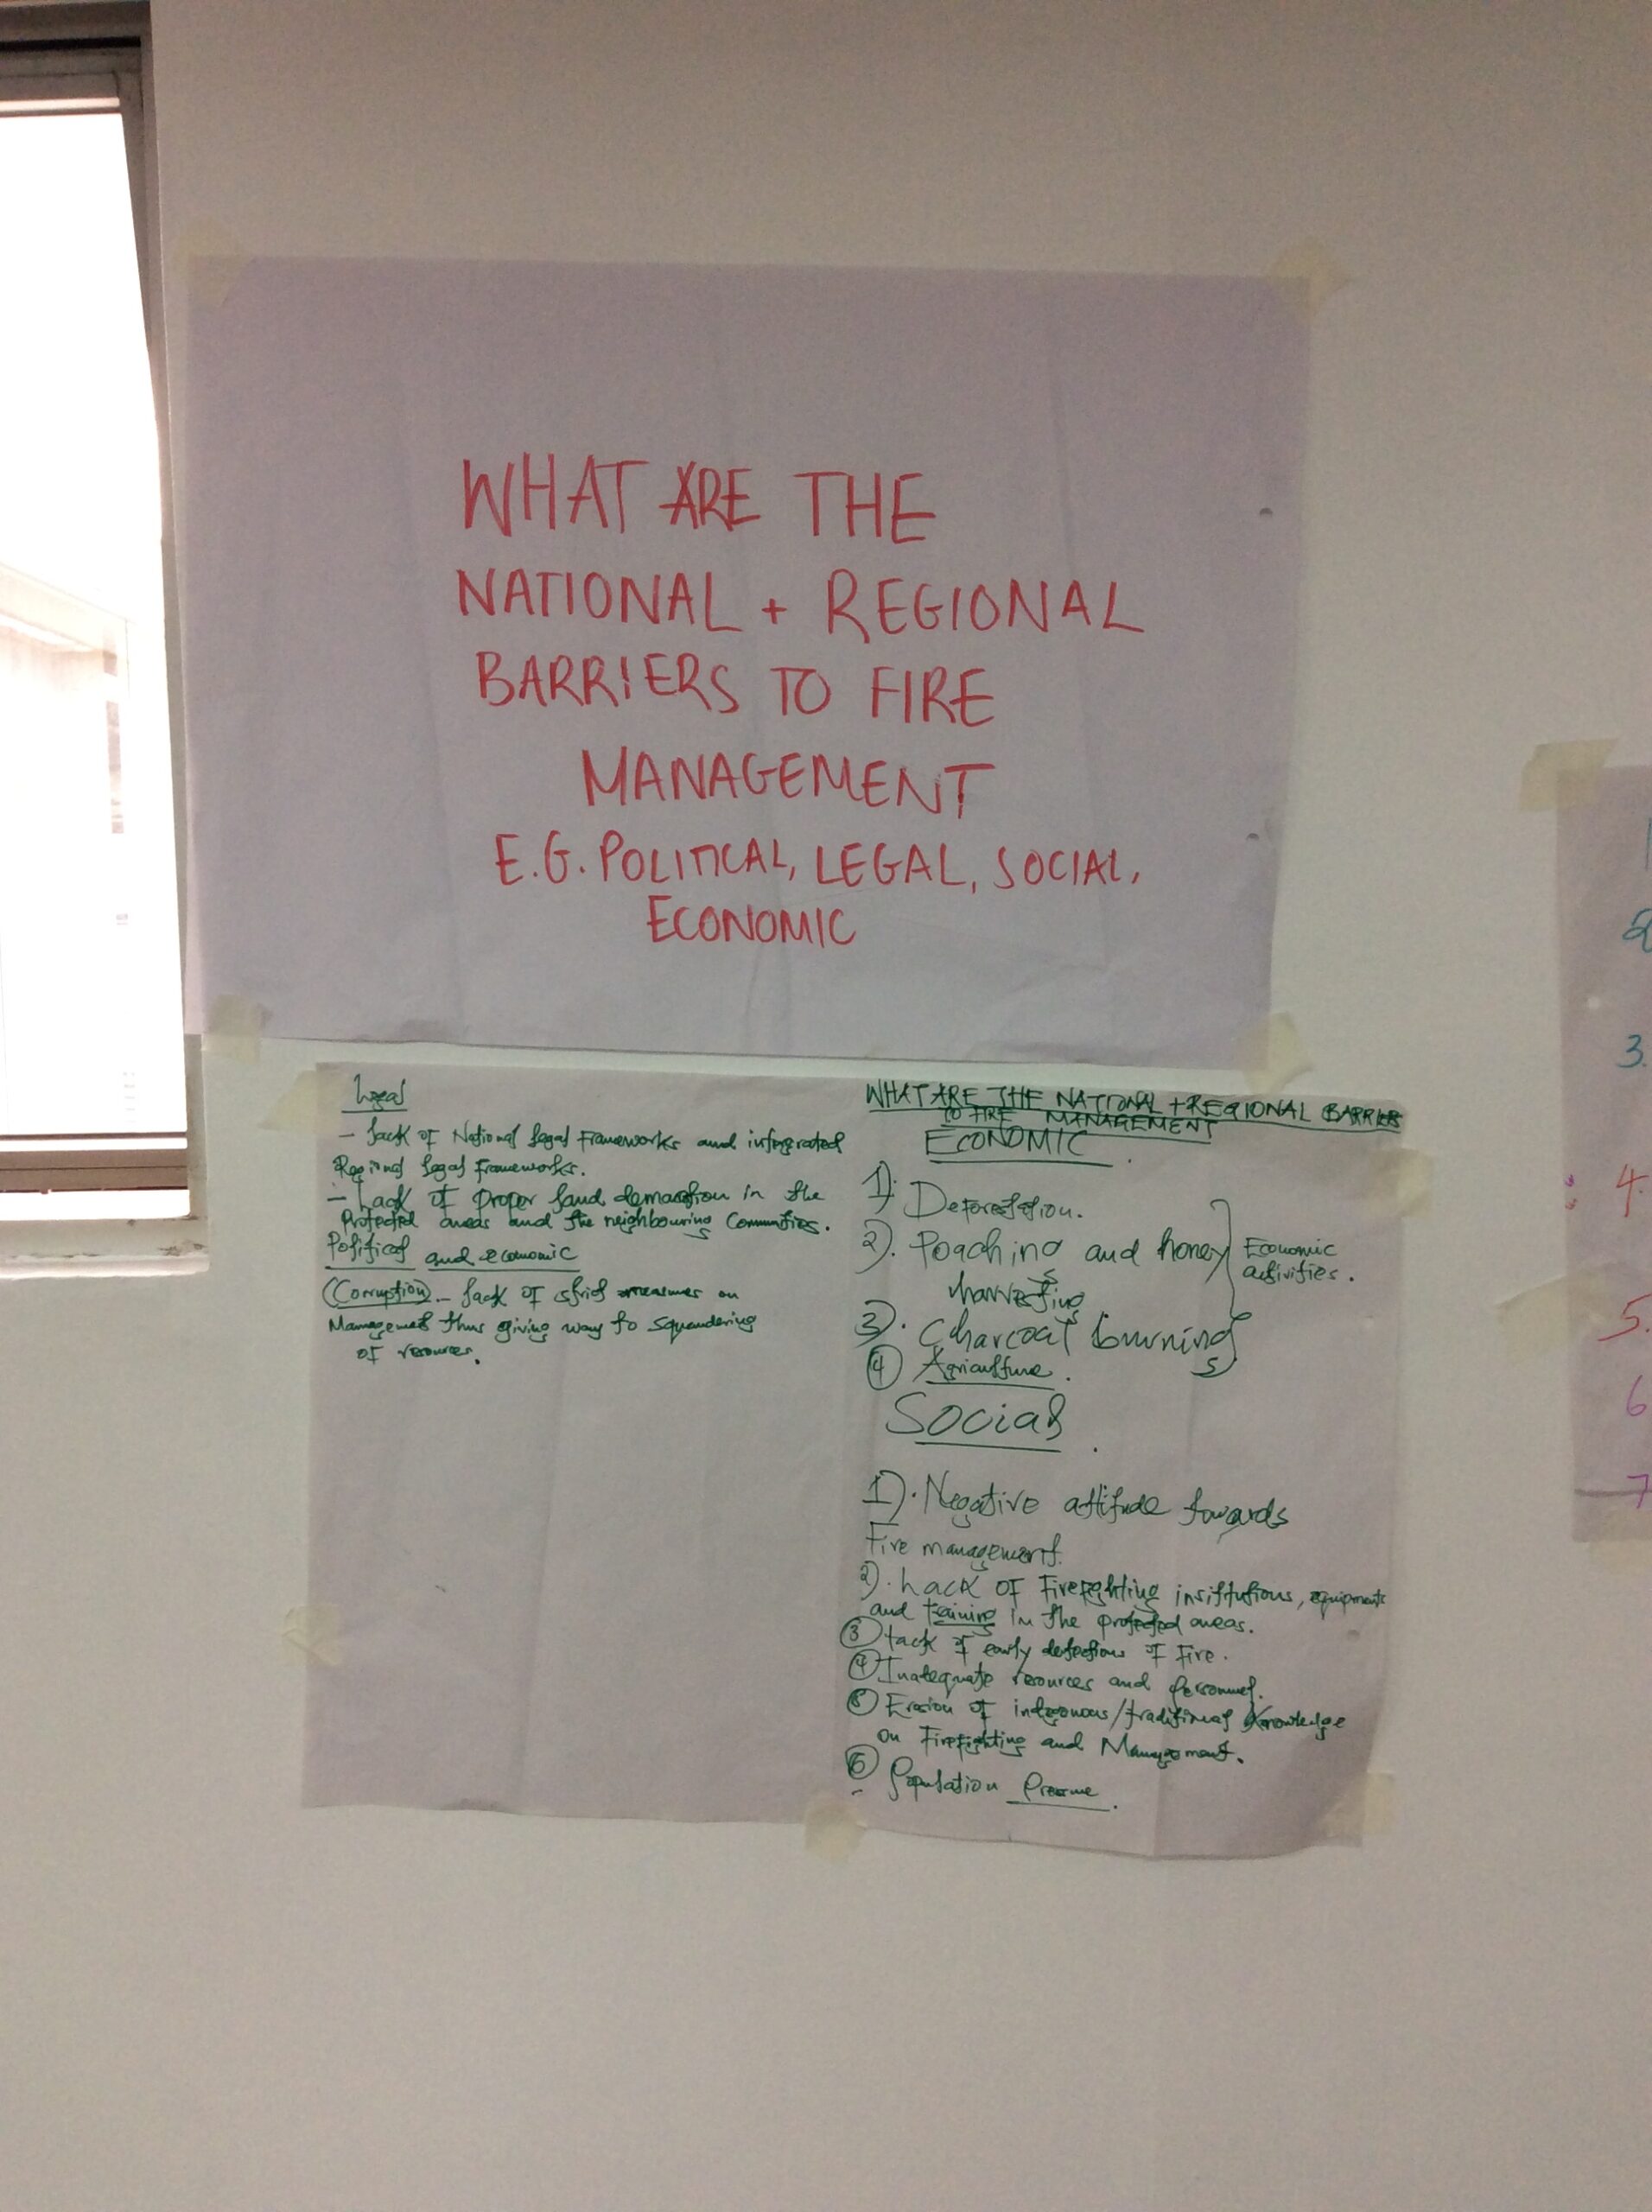 WHAT ARE THE
NATIONAL + REGIONAL
BARRIERS TO FIRE
MANAGEMENT
E.G. POLITICAL, LEGAL, SOCIAL,
ECONOMIC
Legal
- Lack of National legal Frameworks and intergrated
Regional legal Frameworks.
- Lack of proper land in the
Protected areas and the neighbouring Communities.
Political and economic
(Corruption) - Lack of strict measures on
Management thus giving way to squandering
of resources.
WHAT ARE THE NATIONAL + REGIONAL BARRIERS
TO FIRE MANAGEMENT
ECONOMIC
1). Deforestation.
2). Poaching and honey
harvesting
3). Charcoal burning
4) Agriculture.
Economic
activities.
Social
1). Negative attitude towards
Fire management.
2). Lack of Firefighting institutions, equipments
and training in the protected areas.
3) Lack of early detections of Fire.
4) Inadequate resources and personnel.
5) Erosion of indegenous/traditional Knowledge
on Firefighting and Management.
6) Population Pressure.
1
2
3.
4.
5.
6
7